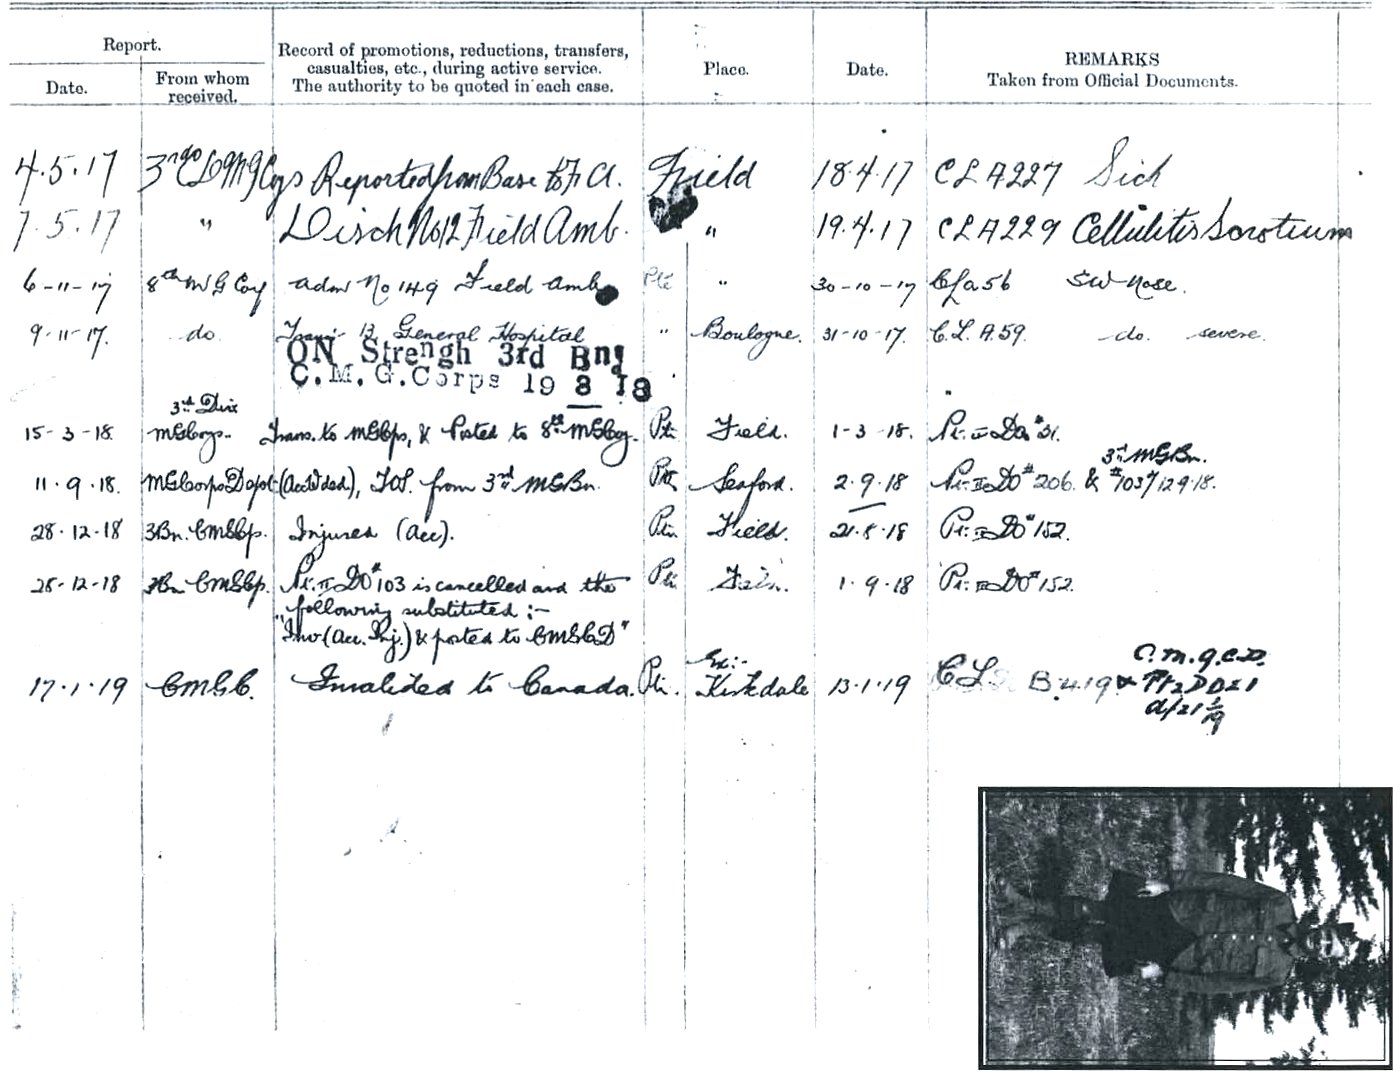 Report.
Date.
From whom
received.
Record of promotions, reductions, transfers,
casualties, etc., during active service.
The authority to be quoted in each case.
Place.
Date.
REMARKS
Taken from Official Documents.
4.5.17 Reported from Base Field 18.4.17 CL A227 Sick
7.5.17 " Disch No 12 Field Amb. " 19.4.17 CL A229 Cellulitis Scrotium
6-11-17 8th M G Coy adm No 149 Field Amb Pte " 30-10-17 CL a 56 SW Nose.
9-11-17. do. 13 General Hospital " Boulogne. 31-10-17. C.L. A.59. do. severe.
ON Strength 3rd Bn
C.M.G.Corps 19 8 18
3rd Div
15-3-18. MGCorps. Trans. to MGCps, & Posted to 8th MGCoy. Pte Field. 1-3-18. Pt. II DO #31.
3rd MGBn.
11.9.18. MGCorps Depot TOS. from 3rd MGBn. Pte Seaford. 2.9.18 Pt. II DO #206. & #103/12.9.18.
28.12.18 3Bn. CMGCp. Injured (Acc). Pte Field. 21.8.18 Pt. II DO #152.
28-12-18 3Bn CMGCp. Pt. II DO #103 is cancelled and the Pte 1.9.18 Pt. II DO #152.
following substituted:-
"Inv (Acc. Inj.) & posted to CMGCD"
Ex:- C.M.G.C.D.
17.1.19 CMGC. Invalided to Canada. Pte. Kirkdale 13.1.19 CL B419 & Pt 2 DO 21
d/21 1/19